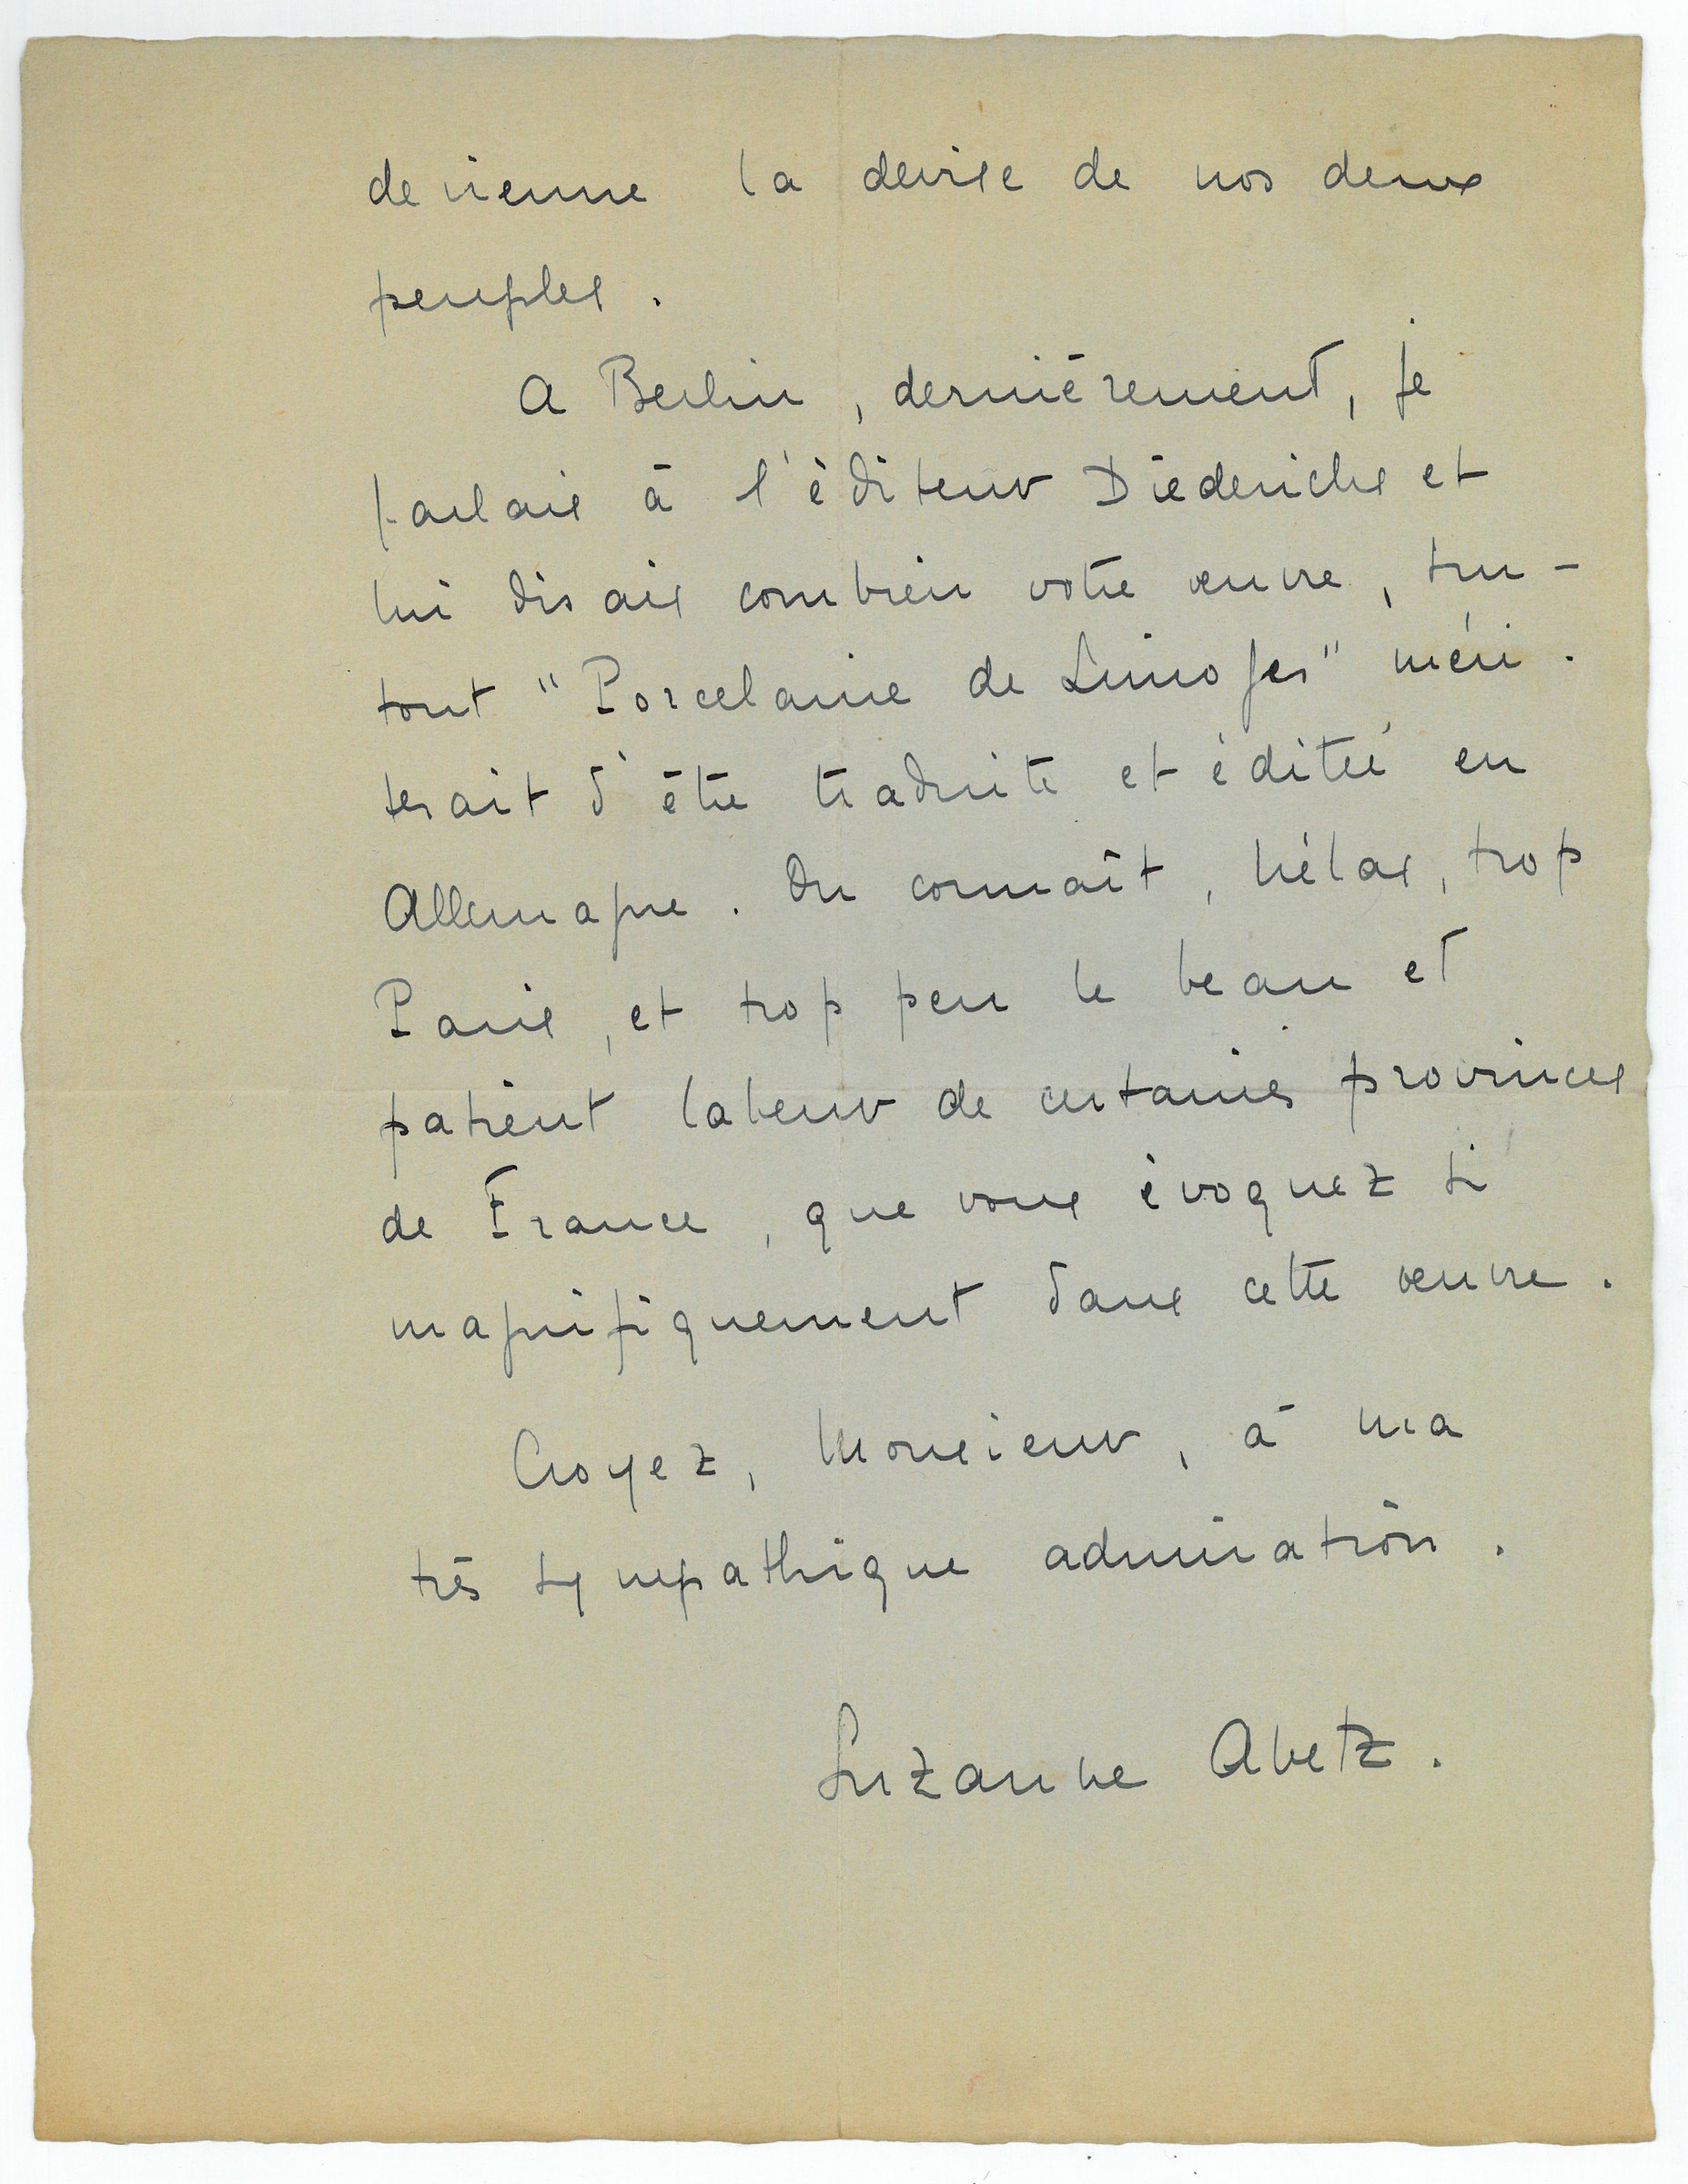 devienne la devise de nos deux
peuples.
A Berlin, dernièrement, je
parlais à l'éditeur Diederichs et
lui disais combien votre œuvre, sur-
tout "Porcelaine de Limoges" méri-
terait d'être traduite et éditée en
Allemagne. On connaît, hélas, trop
Paris, et trop peu le beau et
patient labeur de certaines provinces
de France, que vous évoquez si
magnifiquement dans cette œuvre.
Croyez, Monsieur, à ma
très sympathique admiration.
Suzanne Abetz.